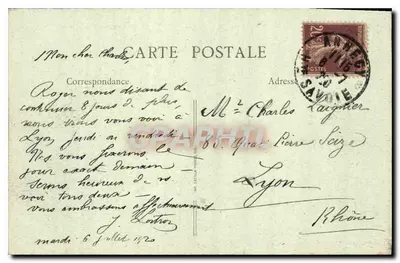 CARTE POSTALE
Mon cher Charles
Correspondance
Adresse
ANNECY
Hte SAVOIE
Roger nous disant de
continuer 8 jours de plus,
nous irons vous voir à
Lyon jeudi ou vendredi
Ns vous fixerons le
jour exact demain
serons heureux de vs
voir tous deux
vous embrassons affectueusement
mardi 6 juillet 1920
Mr Charles
65 Quai Pierre Scize
Lyon
Rhône